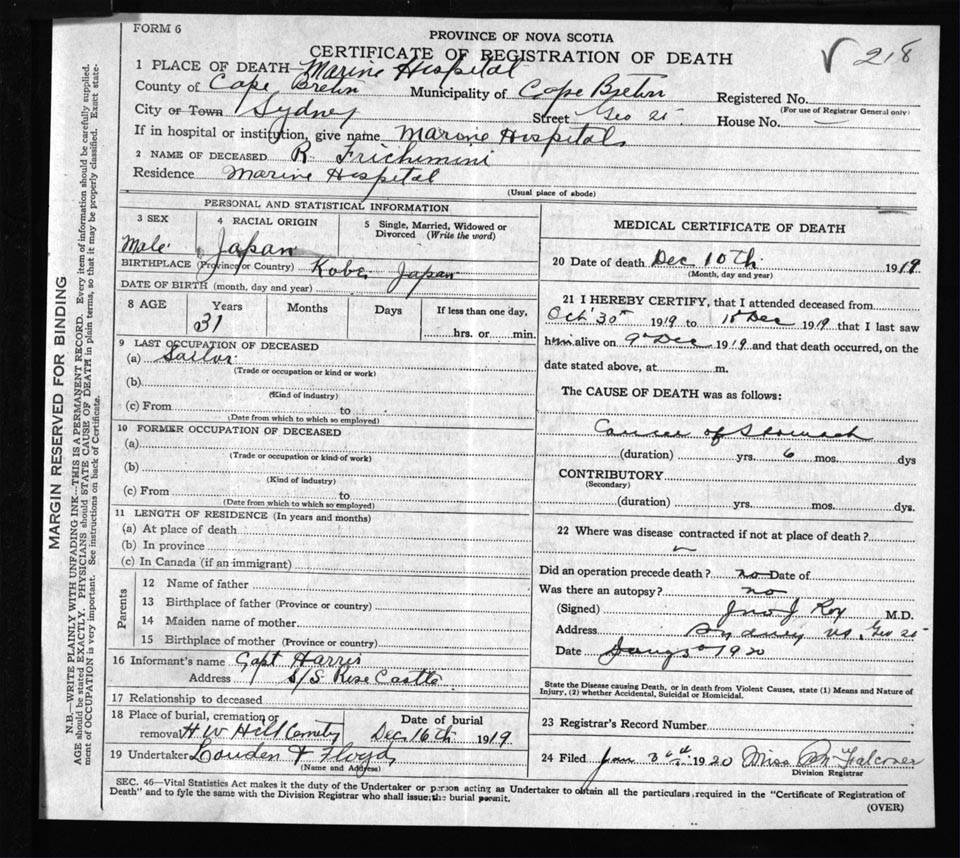 FORM 6
PROVINCE OF NOVA SCOTIA
CERTIFICATE OF REGISTRATION OF DEATH
√ 218
1 PLACE OF DEATH—Marine Hospital
County of Cape Breton Municipality of Cape Breton Registered No.
(For use of Registrar General only)
City or Town Sydney Street Geo St. House No. —
If in hospital or institution, give name Marine Hospital
2 NAME OF DECEASED R. Frichimini
Residence Marine Hospital
(Usual place of abode)
PERSONAL AND STATISTICAL INFORMATION
3 SEX 4 RACIAL ORIGIN 5 Single, Married, Widowed or Divorced (Write the word)
Male Japan
BIRTHPLACE (Province or Country) Kobe Japan
DATE OF BIRTH (month, day and year)
8 AGE Years Months Days If less than one day,
31 hrs. or min.
9 LAST OCCUPATION OF DECEASED
(a) Sailor
(Trade or occupation or kind or work)
(b)
(Kind of industry)
(c) From to
(Date from which to which so employed)
10 FORMER OCCUPATION OF DECEASED
(a)
(Trade or occupation or kind of work)
(b)
(Kind of industry)
(c) From to
(Date from which to which so employed)
11 LENGTH OF RESIDENCE (In years and months)
(a) At place of death
(b) In province
(c) In Canada (if an immigrant)
Parents
12 Name of father
13 Birthplace of father (Province or country)
14 Maiden name of mother
15 Birthplace of mother (Province or country)
16 Informant's name Capt. Harris
Address S/S Rose Castle
17 Relationship to deceased
18 Place of burial, cremation or Date of burial
removal H W Hill Cemetry Dec 16th 1919
19 Undertaker Louden & Floyd
(Name and Address)
MEDICAL CERTIFICATE OF DEATH
20 Date of death Dec 10th 1919
(Month, day and year)
21 I HEREBY CERTIFY, that I attended deceased from
Oct 30th 1919 to Dec 1919 that I last saw
him alive on 9th Dec 1919 and that death occurred, on the
date stated above, at m.
The CAUSE OF DEATH was as follows:
Cancer of Stomach
(duration) yrs. 6 mos. dys
CONTRIBUTORY
(Secondary)
(duration) yrs. mos. dys.
22 Where was disease contracted if not at place of death?
Did an operation precede death? no Date of
Was there an autopsy? no
(Signed) Jno J Roy M.D.
Address Sydney NS. Geo St
Date 1920
State the Disease causing Death, or in death from Violent Causes, state (1) Means and Nature of
Injury, (2) whether Accidental, Suicidal or Homicidal.
23 Registrar's Record Number
24 Filed Jan 1920 Miss Falconer
Division Registrar
SEC. 46—Vital Statistics Act makes it the duty of the Undertaker or person acting as Undertaker to obtain all the particulars required in the "Certificate of Registration of
Death" and to fyle the same with the Division Registrar who shall issue the burial permit.
(OVER)
MARGIN RESERVED FOR BINDING
N.B.—WRITE PLAINLY WITH UNFADING INK—THIS IS A PERMANENT RECORD. Every item of information should be carefully supplied.
AGE should be stated EXACTLY. PHYSICIANS should STATE CAUSE OF DEATH in plain terms, so that it may be properly classified. Exact state-
ment of OCCUPATION is very important. See instructions on back of Certificate.